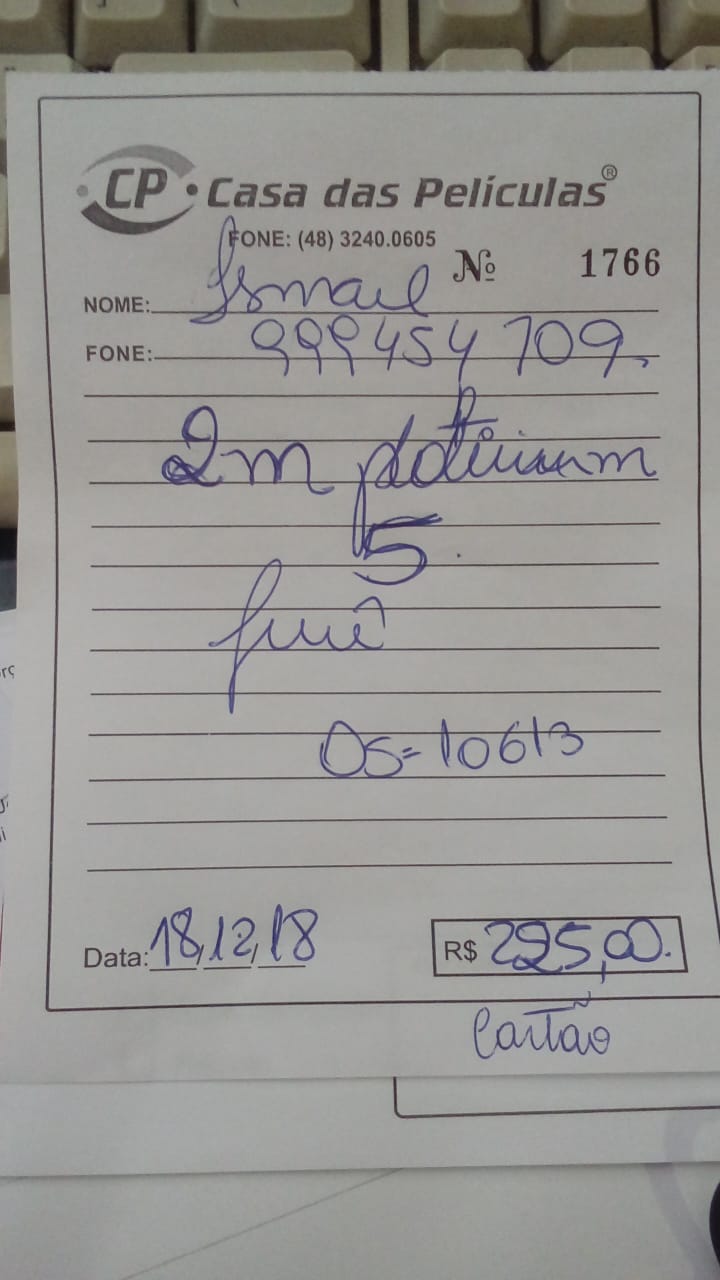 CP • Casa das Películas®
FONE: (48) 3240.0605
Nº 1766
NOME: Ismael
FONE: 999454709
2m platinum
5
OS=10613
Data: 18,12,18
R$ 225,00.
Cartão